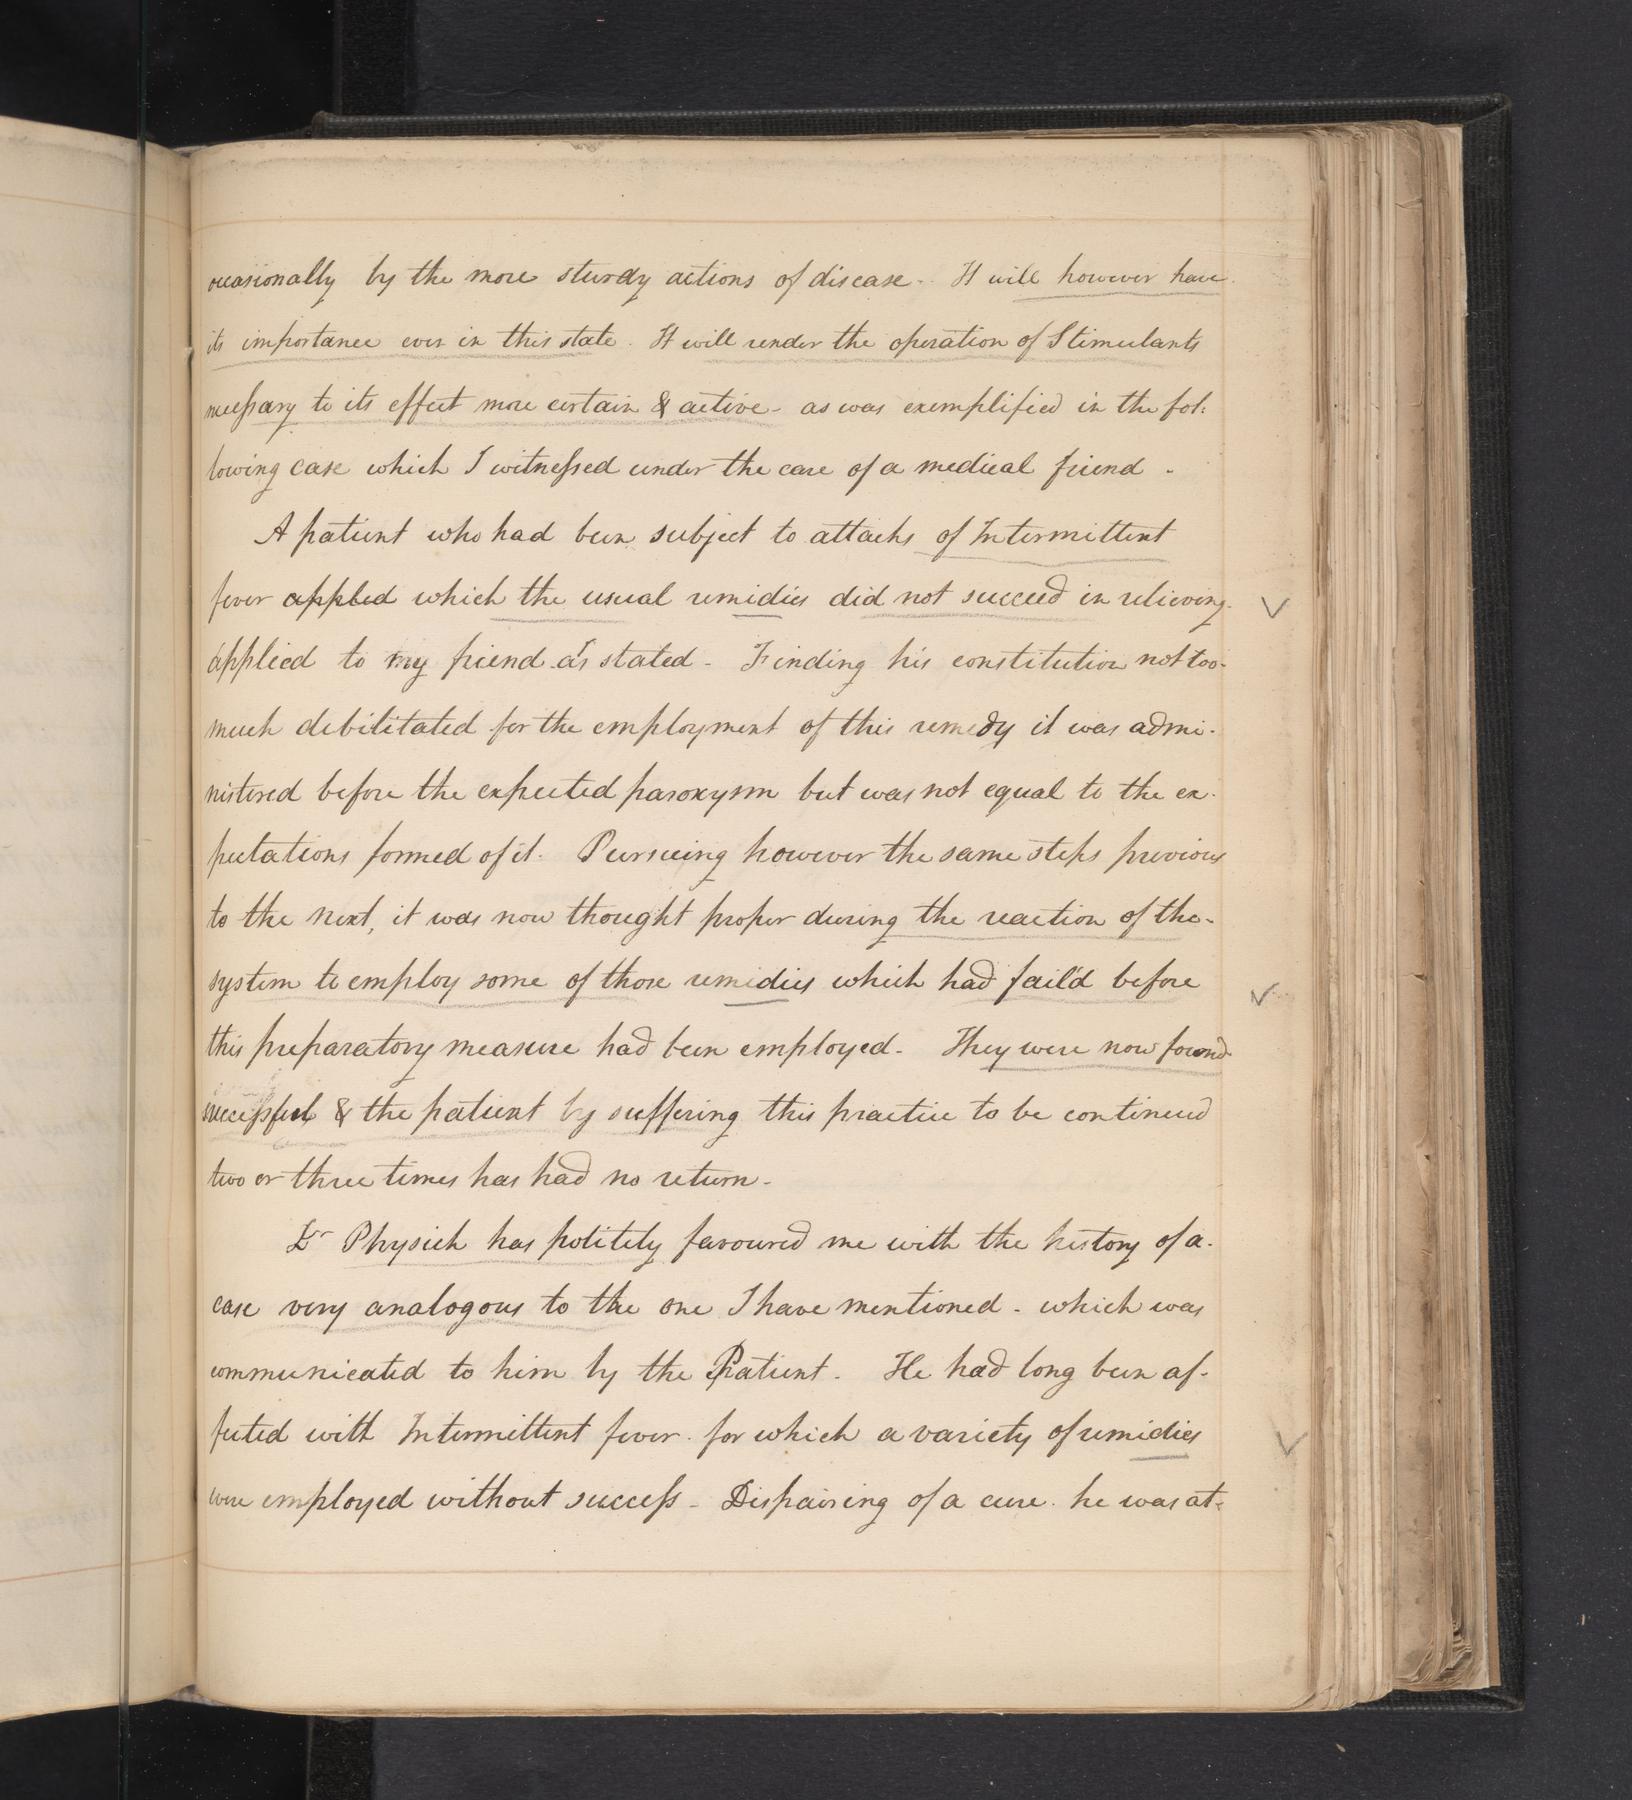 occasionally by the more sturdy actions of disease. It will however have
its importance even in this state. It will render the operation of Stimulants
necessary to its effect more certain & active - as was exemplified in the fol:
lowing case which I witnessed under the care of a medical friend -
A patient who had been subject to attacks of Intermittent
fever applied which the usual remidies did not succeed in relieving.
applied to my friend as stated - Finding his constitution not too
much debilitated for the employment of this remedy it was admi-
nistered before the expected paroxysm but was not equal to the ex-
pectations formed of it. Pursueing however the same steps previous
to the next, it was now thought proper dureing the reaction of the
system to employ some of those remidies which had fail'd before
this preparatory measure had been employed - They were now found
successful & the patient by suffering this practice to be continued
two or three times has had no return -
Dr Physick has politely favoured me with the history of a
case very analogous to the one I have mentioned - which was
communicated to him by the Patient - He had long been af-
fected with Intermittent fever. for which a variety of remidies
were employed without success - Dispairing of a cure. he was at-